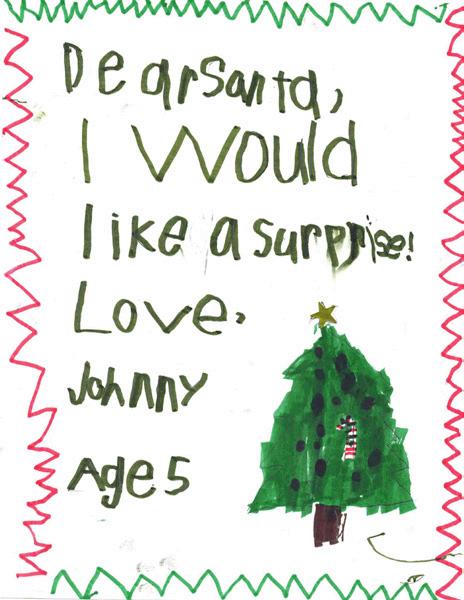 Dear Santa,
I would
like a surprise!
Love,
Johnny
Age 5